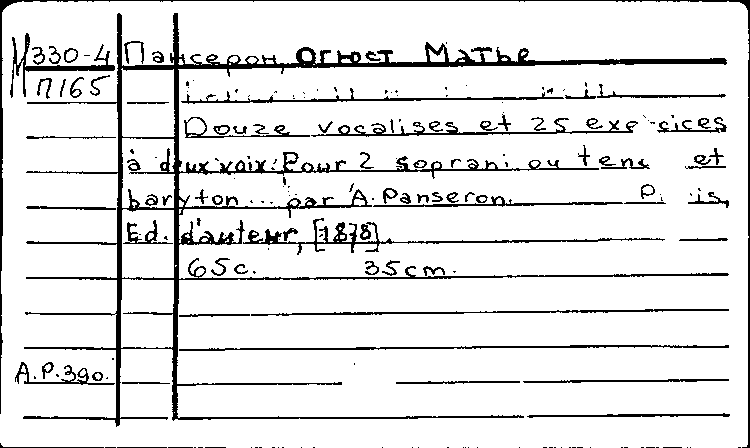 М330-4 Пансерон, Огюст Матье
П165
Douze vocalises et 25 exercices
à deux voix: Pour 2 soprani ou tenc et
baryton ... par A. Panseron. P. is,
Ed. d'auteur, [1878].
65с. 35cm.
А.Р.390.